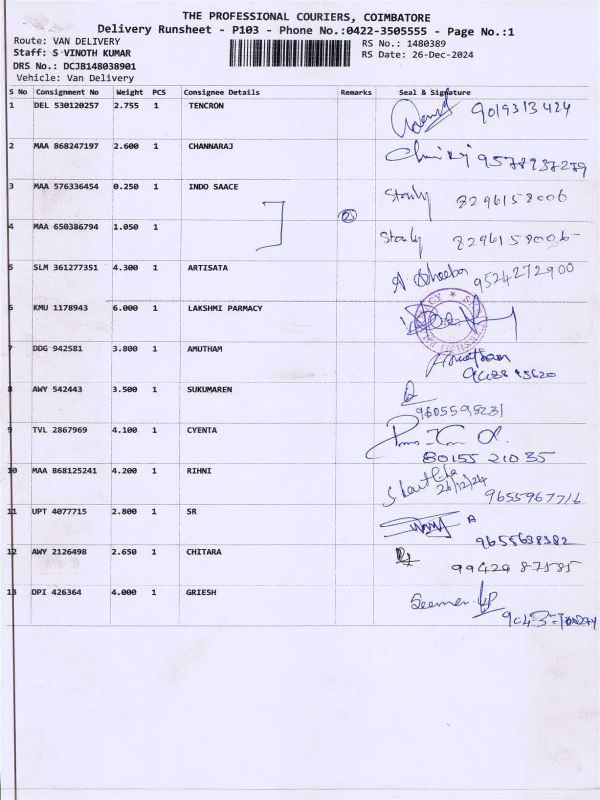 THE PROFESSIONAL COURIERS, COIMBATORE
Delivery Runsheet - P103 - Phone No.:0422-3505555 - Page No.:1
Route: VAN DELIVERY RS No.: 1480389
Staff: S VINOTH KUMAR RS Date: 26-Dec-2024
DRS No.: DCJB148038901
Vehicle: Van Delivery
S No Consignment No Weight PCS Consignee Details Remarks Seal & Signature
1 DEL 530120257 2.755 1 TENCRON 9019313424
2 MAA 868247197 2.600 1 CHANNARAJ 9578937279
3 MAA 576336454 0.250 1 INDO SAACE Stanly 8296158006
4 MAA 650386794 1.050 1 Stanly 8296158006
5 SLM 361277351 4.300 1 ARTISATA 9524272900
6 KMU 1178943 6.000 1 LAKSHMI PARMACY
7 DDG 942581 3.800 1 AMUTHAM
8 AWY 542443 3.500 1 SUKUMAREN
9605598231
9 TVL 2867969 4.100 1 CYENTA
80155 21035
10 MAA 868125241 4.200 1 RIHNI
26/12/24 9655967716
11 UPT 4077715 2.800 1 SR
9655638382
12 AWY 2126498 2.650 1 CHITARA
99429 87585
13 DPI 426364 4.000 1 GRIESH